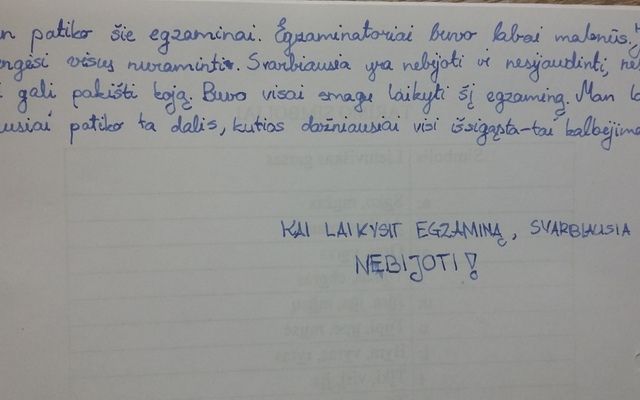 patiko šie egzaminai. Egzaminatoriai buvo labai malonūs,
visus nuraminti. Svarbiausia yra nebijoti ir nesijaudinti,
gali pakišti koją. Buvo visai smagu laikyti šį egzaminą. Man
patiko ta dalis, kurios dažniausiai visi išsigąsta-tai kalbėjimo
KAI LAIKYSIT EGZAMINĄ, SVARBIAUSIA
NEBIJOTI!